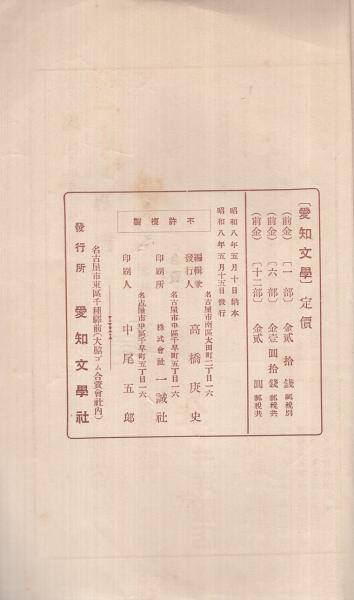 〔愛知文學〕定價
(前金)〔一部〕金貳拾錢 郵税別
(前金)〔六部〕金壹圓拾錢 郵税共
(前金)〔十二部〕金貳圓 郵税共
昭和八年五月十日納本
昭和八年五月十五日發行
不許複製
名古屋市南區太田町二丁目一六
編輯兼發行人 高橋庚史
名古屋市中區千早町五丁目一六
印刷所 株式會社一誠社
名古屋市中區千早町五丁目一六
印刷人 中尾五郎
名古屋市東區千種驛前(大脇ゴム合資會社内)
發行所 愛知文學社